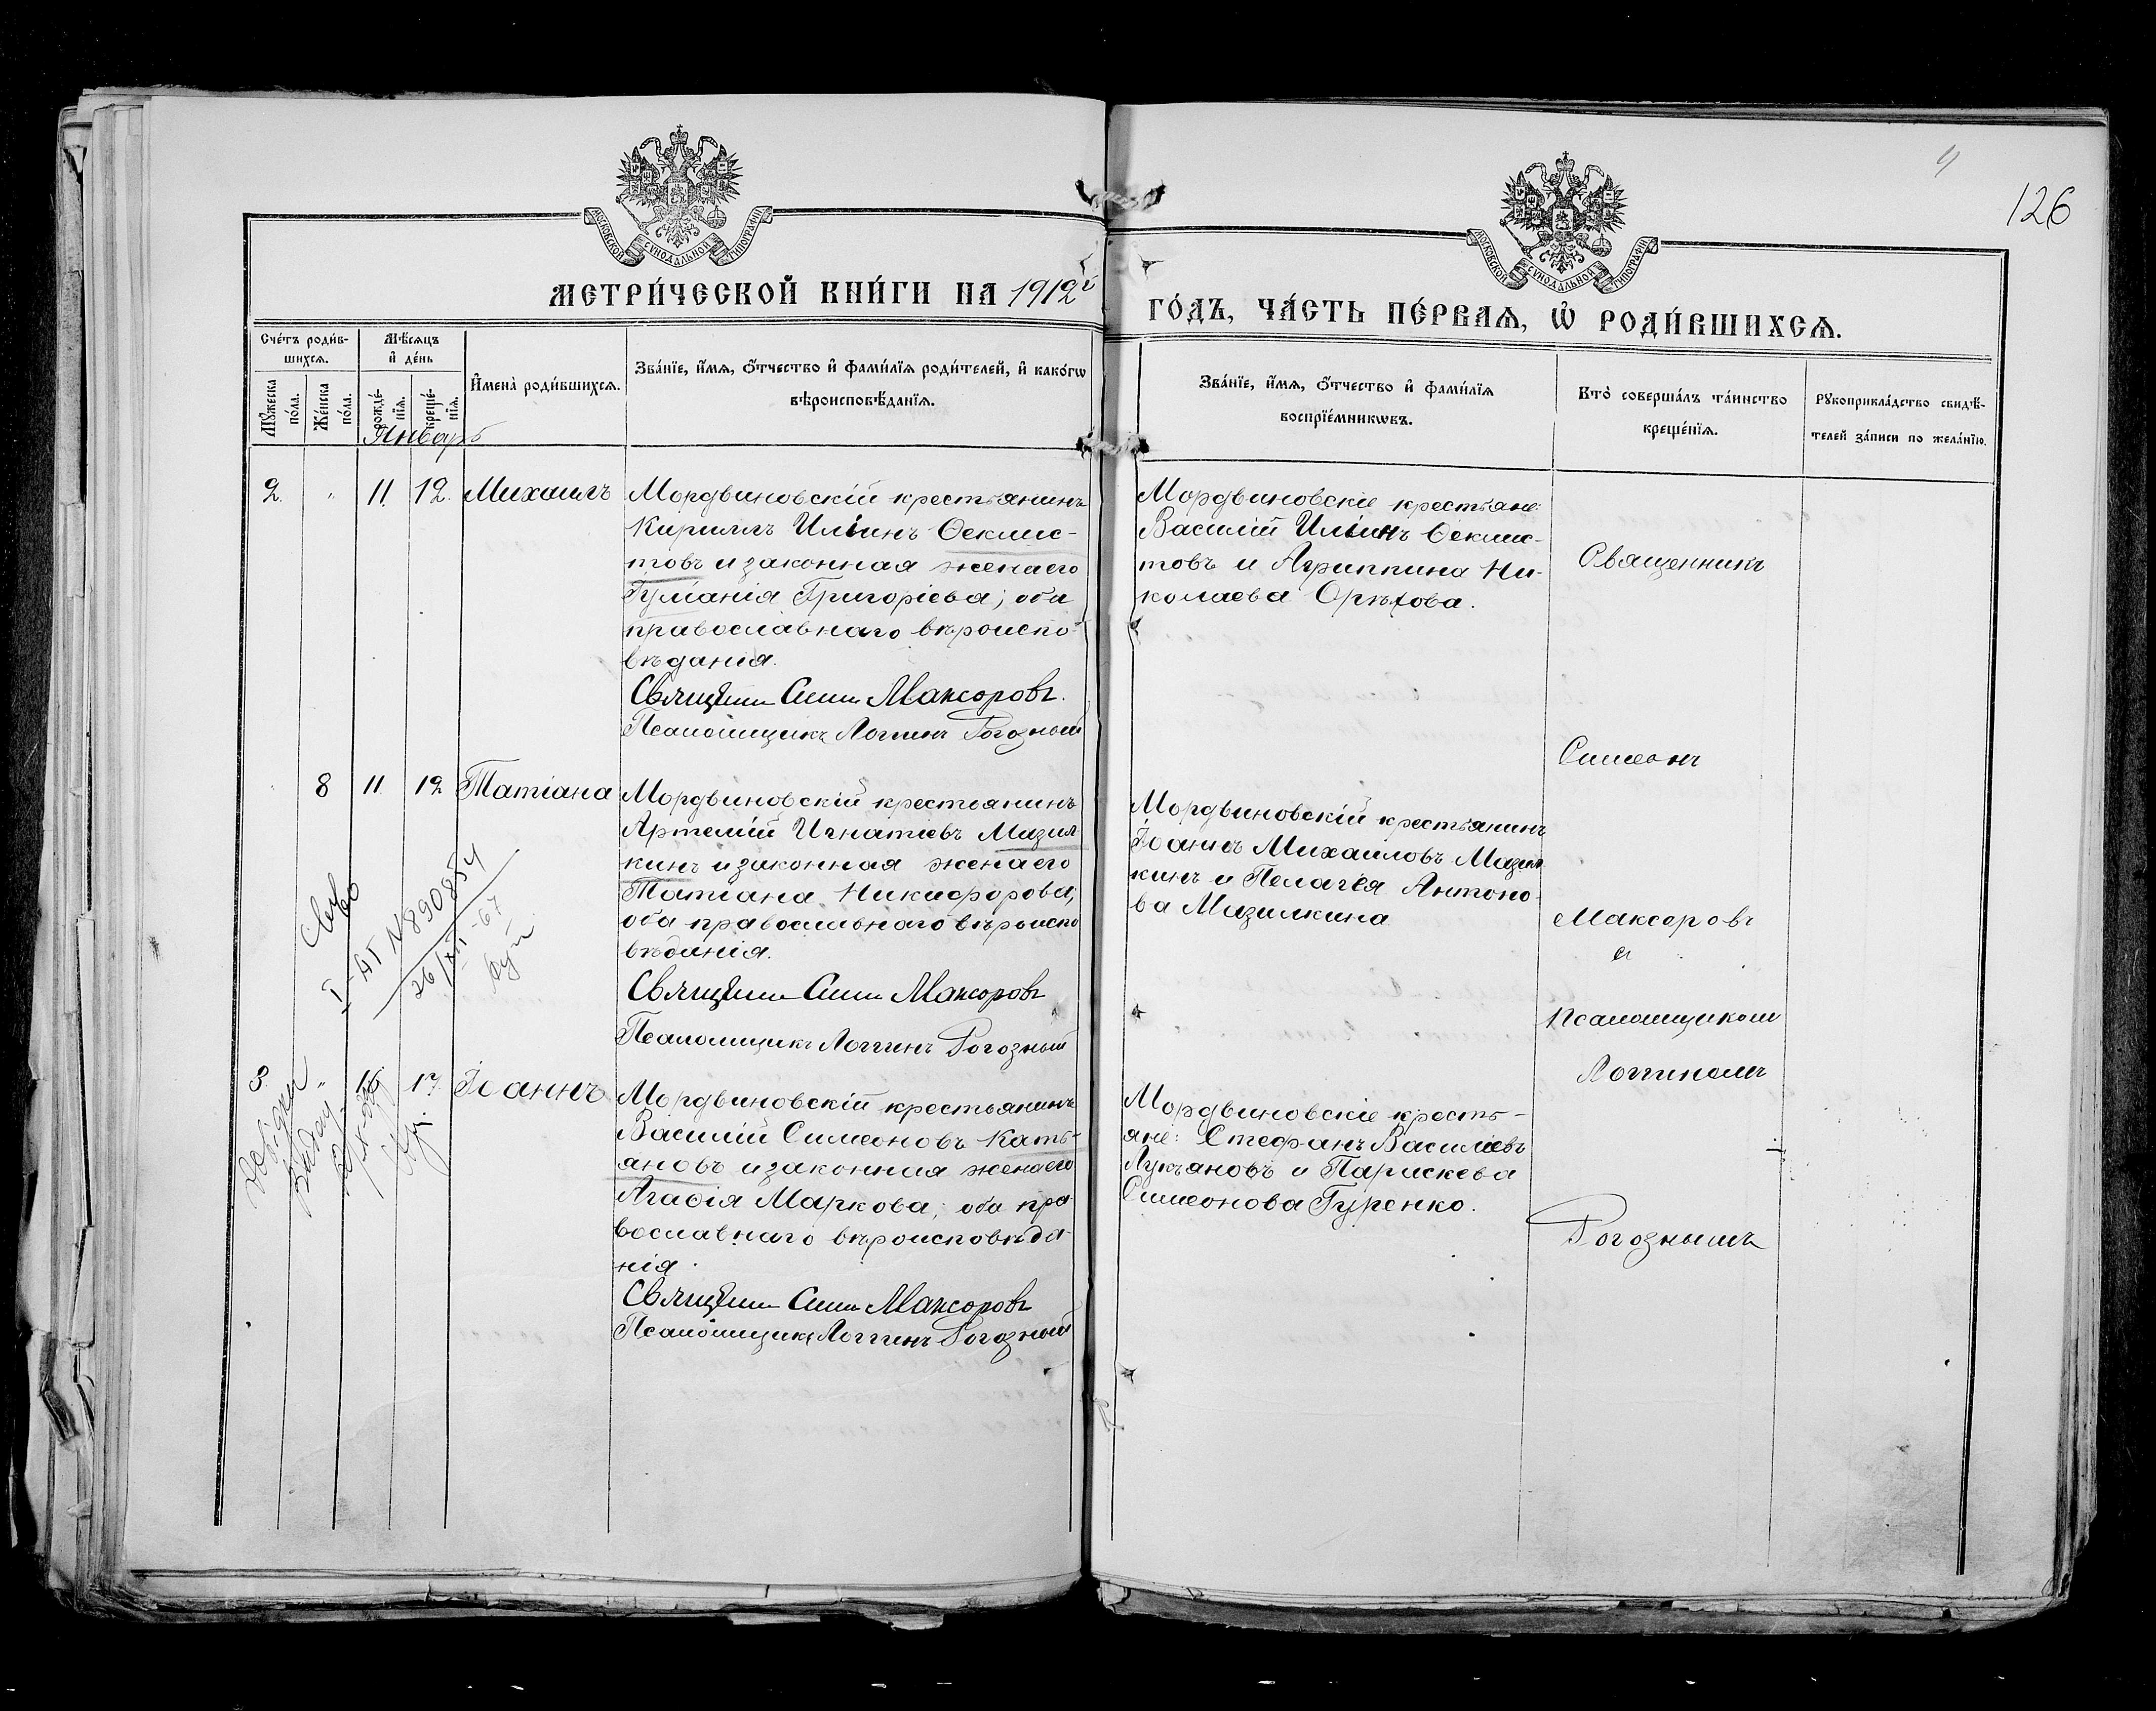 126
МОСКОВСКОЙ СѴНОДАЛЬНОЙ ТИПОГРАФІИ
МОСКОВСКОЙ СѴНОДАЛЬНОЙ ТИПОГРАФІИ
МЕТРИ́ЧЕСКОЙ КНИ́ГИ НА 1912й
ГО́ДЪ, ЧА́СТЬ ПЕ́РВАЯ, Ѡ҆ РОДИ́ВШИХСЯ.
Сче́тъ роди́в-
шихся.
Му́жеска по́ла.
Же́нска по́ла.
Мѣ́сяцъ
и҆ де́нь
рожде́-
нїя.
креще́-
нїя.
И҆мена̀ роди́вшихся.
Зва́нїе, и҆́мя, ѻ҆́тчество и҆ фами́лїя роди́телей, и҆ како́гѡ
вѣроисповѣ́данїя.
Зва́нїе, и҆́мя, ѻ҆́тчество и҆ фами́лїя
воспрїе́мникѡвъ.
Кто̀ соверша́лъ та́инство
креще́нїя.
Рꙋкоприкла́дство свидѣ́-
телей за́писи по жела́нїю.
Январь
2. " 11. 12. Михаилъ
Мордвиновскій крестьянинъ
Кириллъ Ильинъ Ѳеклис-
товъ и законная жена его
Іуліанія Григоріева; оба
православнаго вѣроиспо-
вѣданія.
Симе Максоровъ.
Псаломщикъ Логгинъ Рогозный
Мордвиновскіе крестьяне:
Василій Ильинъ Ѳеклис-
товъ и Агриппина Ни-
колаева Орѣхова.
Священникъ
Симеонъ
Максоровъ
съ
псаломщикомъ
Логгиномъ
Рогознымъ
8 11 12 Татіана
Мордвиновскій крестьянинъ
Артемій Игнатіевъ Мазил-
кинъ и законная жена его
Татіана Никифорова;
оба православнаго вѣроиспо
вѣданія.
Симе Максоровъ
Псаломщикъ Логгинъ Рогозный
Мордвиновскій крестьянинъ
Іоаннъ Михаиловъ Мазил
кинъ и Пелагія Антоно-
ва Мазилкина
I-АП №890854
26/XII-67
3. " 17. Іоаннъ
Мордвиновскій крестьянинъ
Василій Симеоновъ Кать-
яновъ и законная жена его
Агаѳія Маркова; оба пра
вославнаго вѣроисповѣда-
нія.
Симе Максоровъ
Псаломщикъ Логгинъ Рогозный
Мордвиновскіе кресть-
яне: Стефанъ Васильевъ
Лукьяновъ и Параскева
Симеонова Гуренко.